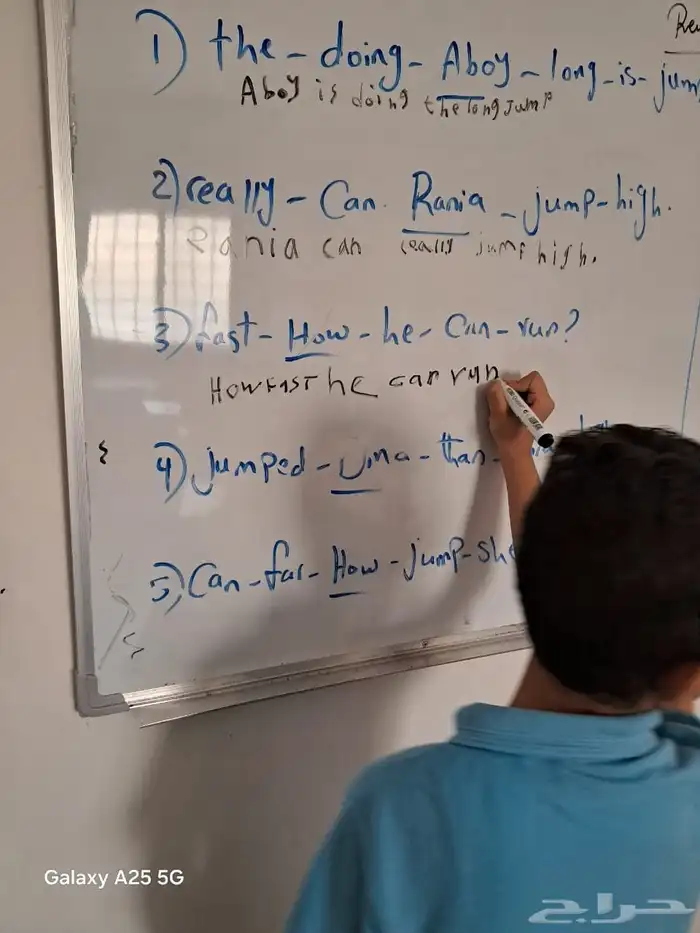 1) the - doing - Aboy - long - is - jum
Aboy is doing the long jump
2) really - Can Rania - jump - high.
Rania can really jump high.
3) fast - How - he - Can - run?
How FAST he can run
4) jumped - Uma - than -
5) Can - far - How - jump - she
Galaxy A25 5G
حراج